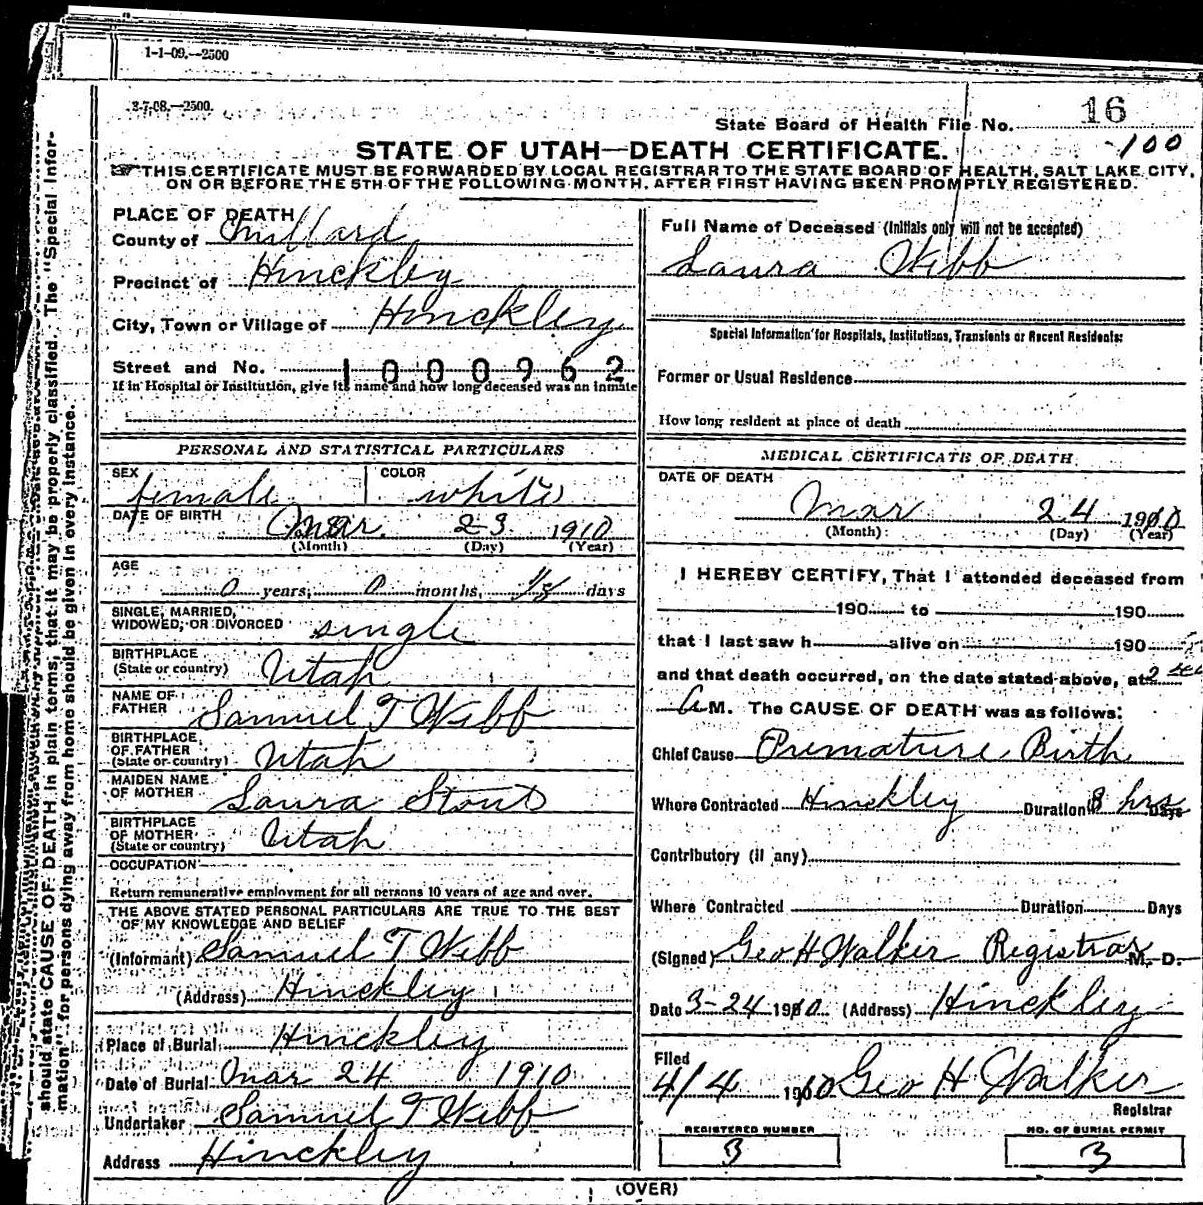 1-1-09.—2500
3-7-08.—2500.
State Board of Health File No. 16
100
STATE OF UTAH—DEATH CERTIFICATE.
THIS CERTIFICATE MUST BE FORWARDED BY LOCAL REGISTRAR TO THE STATE BOARD OF HEALTH, SALT LAKE CITY,
ON OR BEFORE THE 5TH OF THE FOLLOWING MONTH, AFTER FIRST HAVING BEEN PROMPTLY REGISTERED.
should state CAUSE OF DEATH in plain terms, that it may be properly classified. The "Special Infor-
mation" for persons dying away from home should be given in every instance.
PLACE OF DEATH
County of Millard
Precinct of Hinckley
City, Town or Village of Hinckley
Street and No. 1000962
If in Hospital or Institution, give its name and how long deceased was an inmate
PERSONAL AND STATISTICAL PARTICULARS
SEX female COLOR white
DATE OF BIRTH Mar. 23 1910
(Month) (Day) (Year)
AGE
0 years, 0 months, 1/8 days
SINGLE, MARRIED,
WIDOWED, OR DIVORCED single
BIRTHPLACE
(State or country) Utah
NAME OF
FATHER Samuel T Webb
BIRTHPLACE
OF FATHER
(State or country) Utah
MAIDEN NAME
OF MOTHER Laura Stout
BIRTHPLACE
OF MOTHER
(State or country) Utah
OCCUPATION
Return remunerative employment for all persons 10 years of age and over.
THE ABOVE STATED PERSONAL PARTICULARS ARE TRUE TO THE BEST
OF MY KNOWLEDGE AND BELIEF
(Informant) Samuel T Webb
(Address) Hinckley
Place of Burial Hinckley
Date of Burial Mar 24 1910
Undertaker Samuel T Webb
Address Hinckley
Full Name of Deceased (Initials only will not be accepted)
Laura Webb
Special Information for Hospitals, Institutions, Transients or Recent Residents:
Former or Usual Residence
How long resident at place of death
MEDICAL CERTIFICATE OF DEATH
DATE OF DEATH
Mar 24 1910
(Month) (Day) (Year)
I HEREBY CERTIFY, That I attended deceased from
190 to 190
that I last saw h alive on 190
and that death occurred, on the date stated above, at 2
A M. The CAUSE OF DEATH was as follows:
Chief Cause Premature Birth
Where Contracted Hinckley Duration 8 hrs Days
Contributory (if any)
Where Contracted Duration Days
(Signed) Geo H Walker Registrar M. D.
Date 3-24 1910 (Address) Hinckley
Filed
4/4 1910 Geo H Walker
Registrar
REGISTERED NUMBER
3
NO. OF BURIAL PERMIT
3
(OVER)